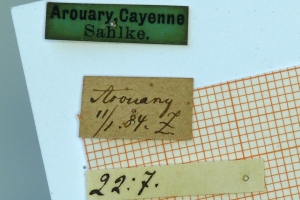 Arouary, Cayenne
Sahlke.
Arouany
11/1.84. Z
22:7.